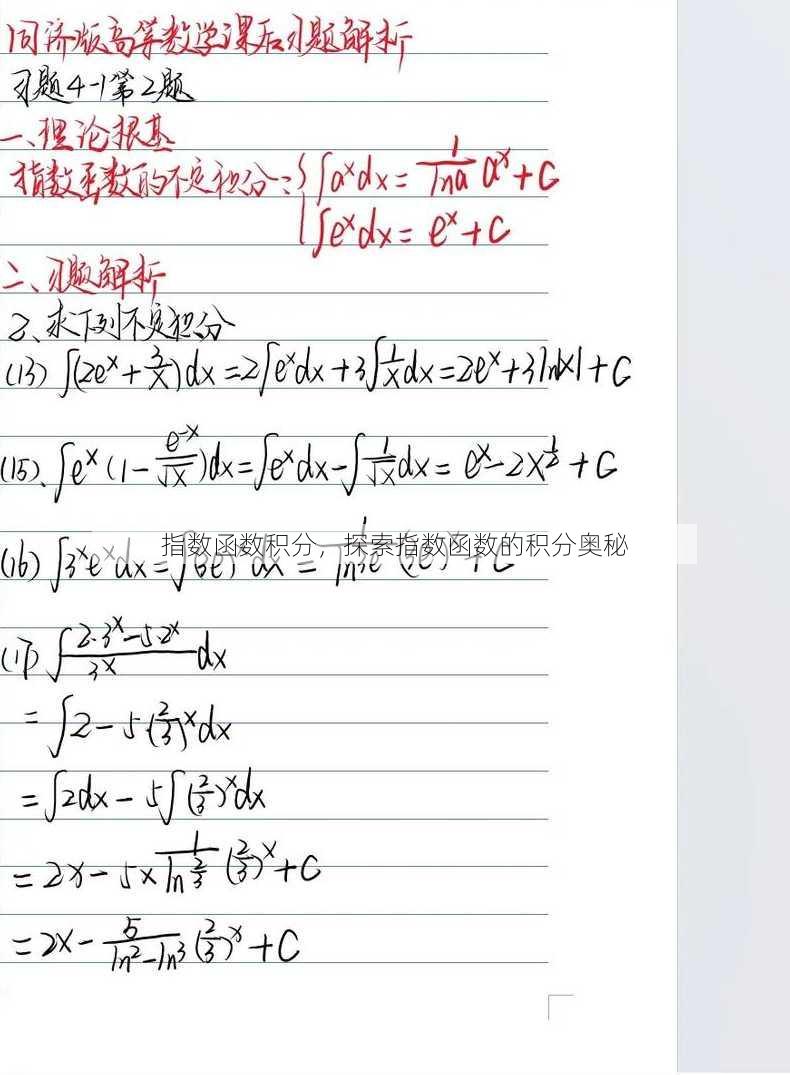 同济版高等数学课后习题解析
习题4-1第2题
一、理论根基
指数函数的不定积分:{∫aˣdx=1/lna aˣ+C
∫eˣdx=eˣ+C
二、习题解析
2、求下列不定积分
(13) ∫(2eˣ+3/x)dx=2∫eˣdx+3∫1/x dx=2eˣ+3ln|x|+C
(15)、∫eˣ(1-e⁻ˣ/√x)dx=∫eˣdx-∫1/√x dx=eˣ-2x^(1/2)+C
指数函数积分，探索指数函数的积分奥秘
(16) ∫3ˣeˣdx=∫(3e)ˣdx=1/ln3e (3e)ˣ+C
(17) ∫(2·3ˣ-5·2ˣ)/3ˣ dx
=∫2-5·(2/3)ˣdx
=∫2dx-5∫(2/3)ˣdx
=2x-5×1/ln(2/3) (2/3)ˣ+C
=2x-5/(ln2-ln3) (2/3)ˣ+C